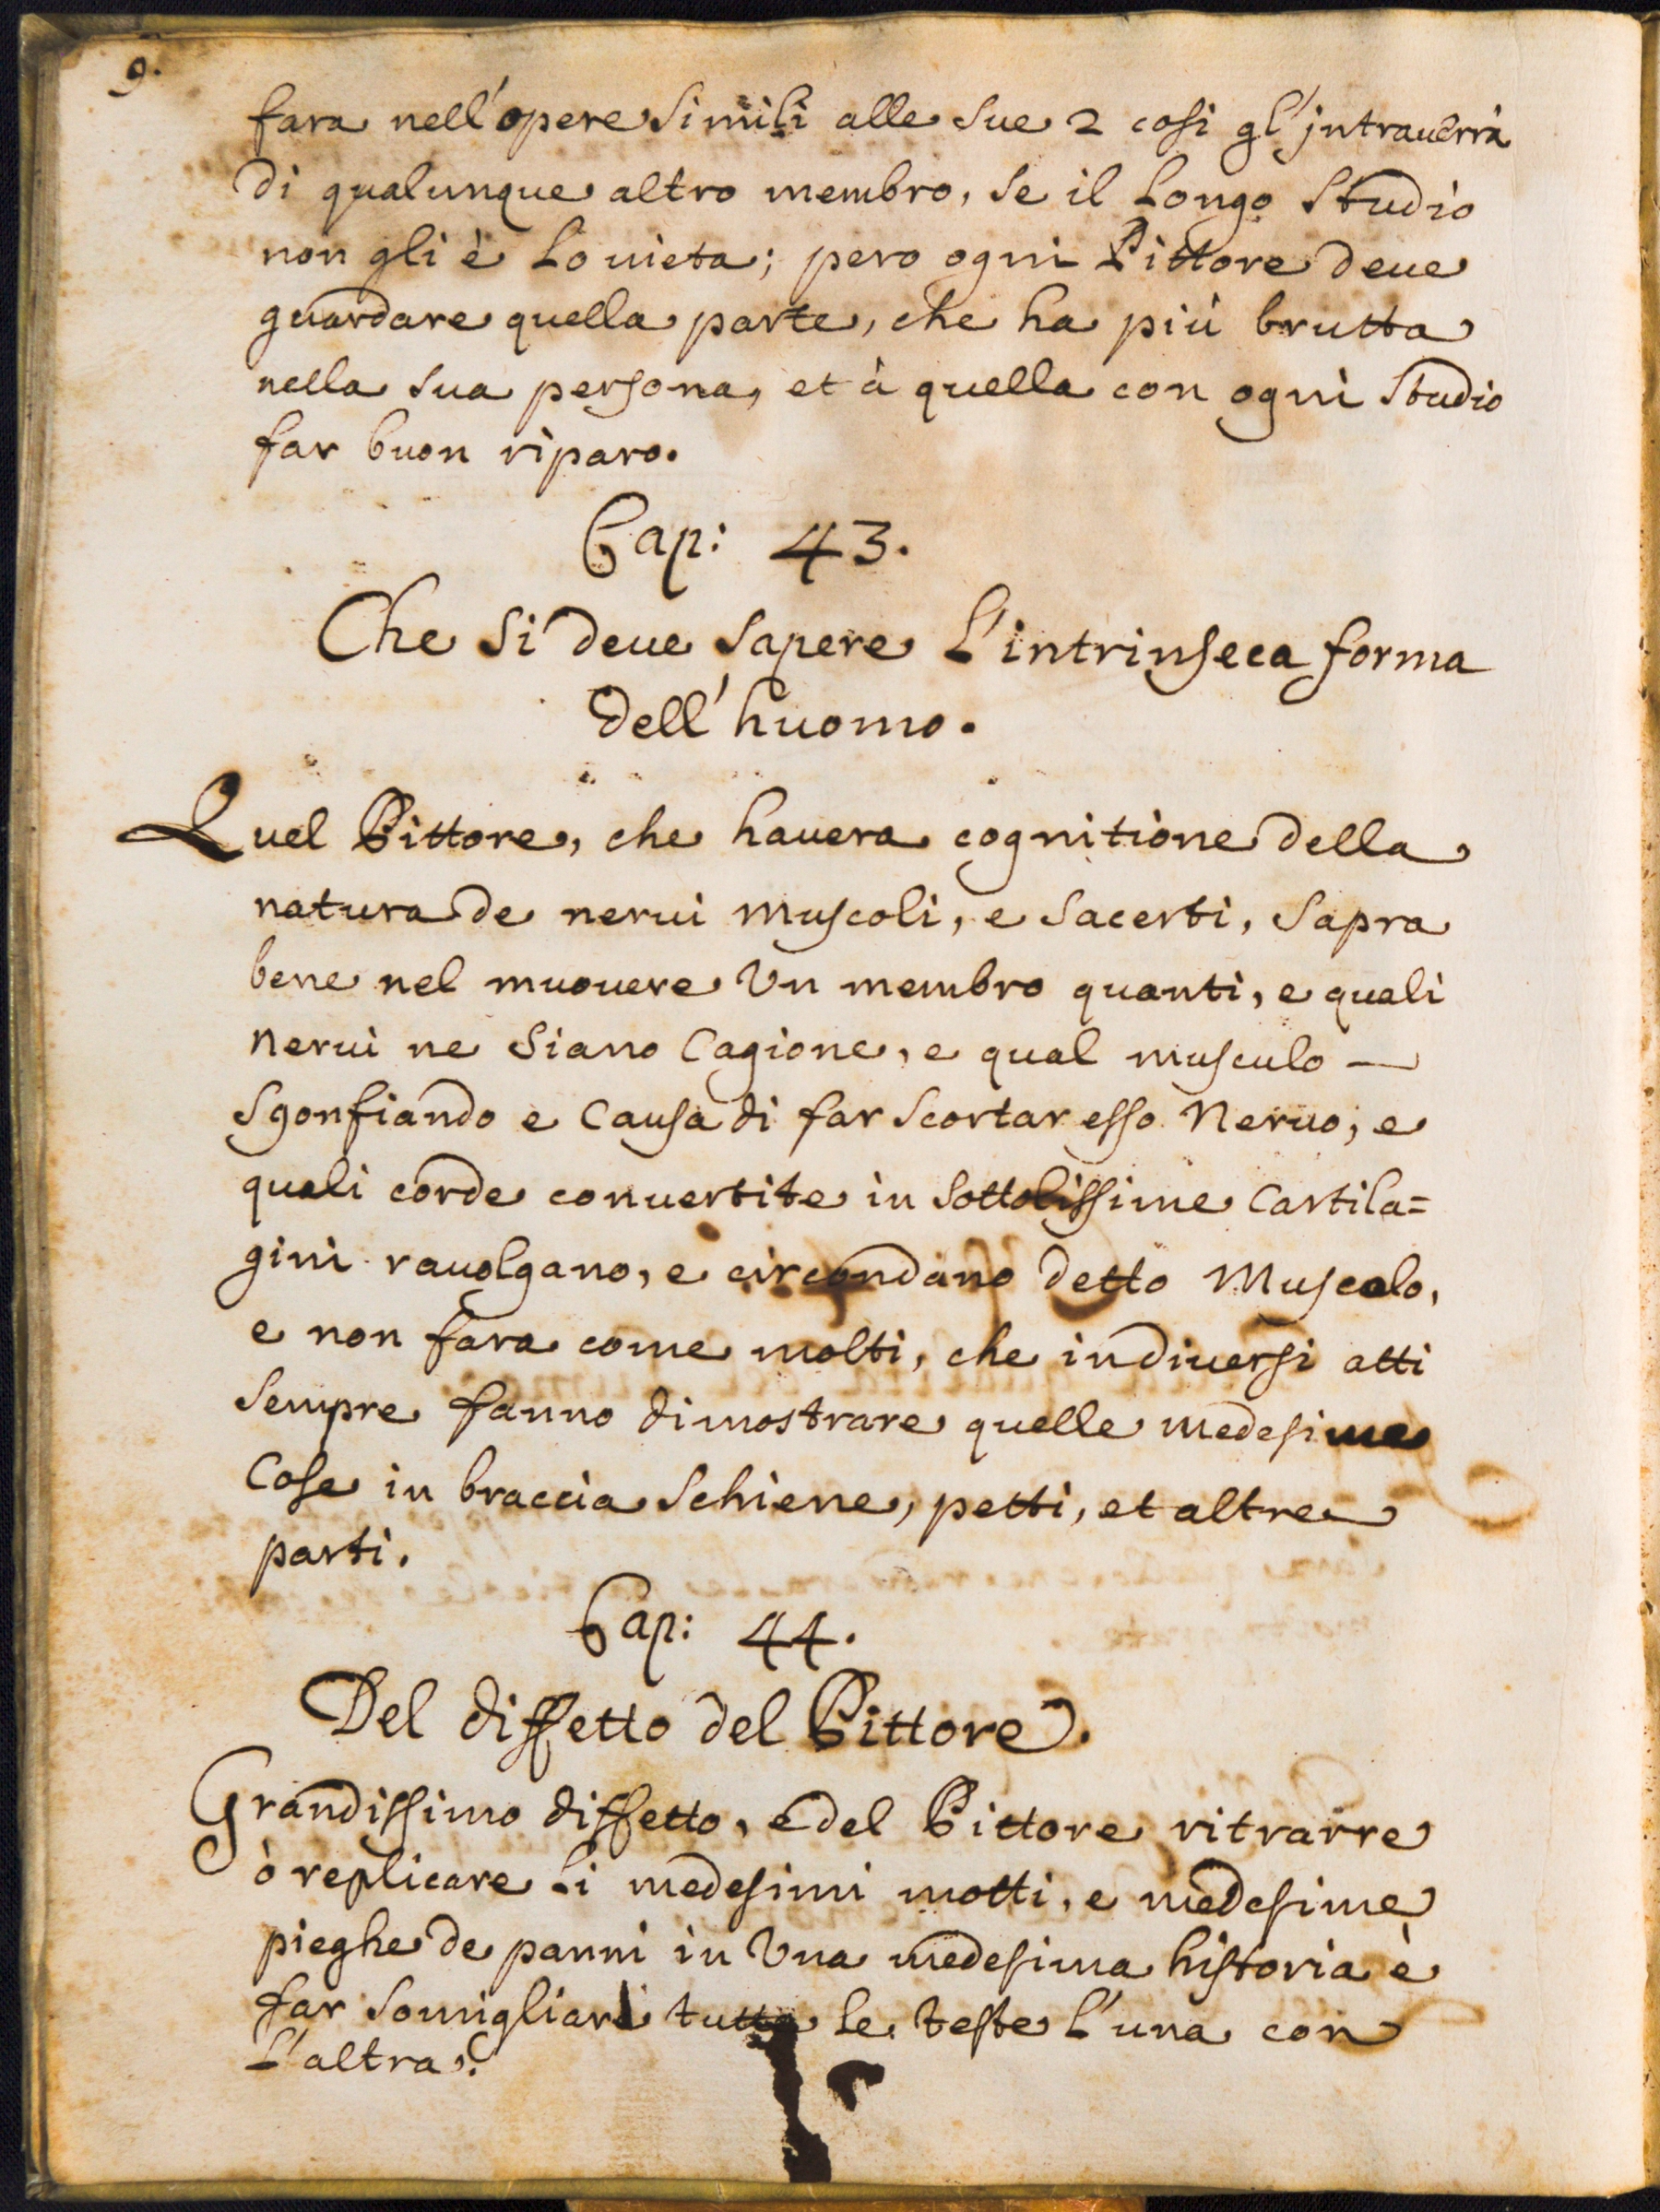 9.
fara nell'opere simili alle sue 2 cosi gl'jntrauerrà
di qualunque altro membro, se il Longo studio
non gli è Lo uieta; pero ogni Pittore deue
guardare quella parte, che ha più brutta
nella sua persona, et à quella con ogni studio
far buon riparo.
Cap: 43.
Che si deue sapere L'intrinseca forma
dell'huomo.
Quel Pittore, che hauera cognitione della
natura de nerui muscoli, e Lacerti, sapra
bene nel muouere Vn membro quanti, e quali
nerui ne siano Cagione, e qual musculo —
sgonfiando e Causa di far scortar esso Neruo; e
quali corde conuertite in sottolissime Cartila=
gini rauolgano, e circondano detto Muscolo,
e non fara come molti, che in diuersi atti
sempre fanno dimostrare quelle medesime
Cose in braccia schiene, petti, et altre
parti.
Cap: 44.
Del diffetto del Pittore.
Grandissimo diffetto, e del Pittore ritrarre
ò replicare Li medesimi motti, e medesime
pieghe de panni in Vna medesima historia è
far somigliar tutte le teste L'una con
L'altra.